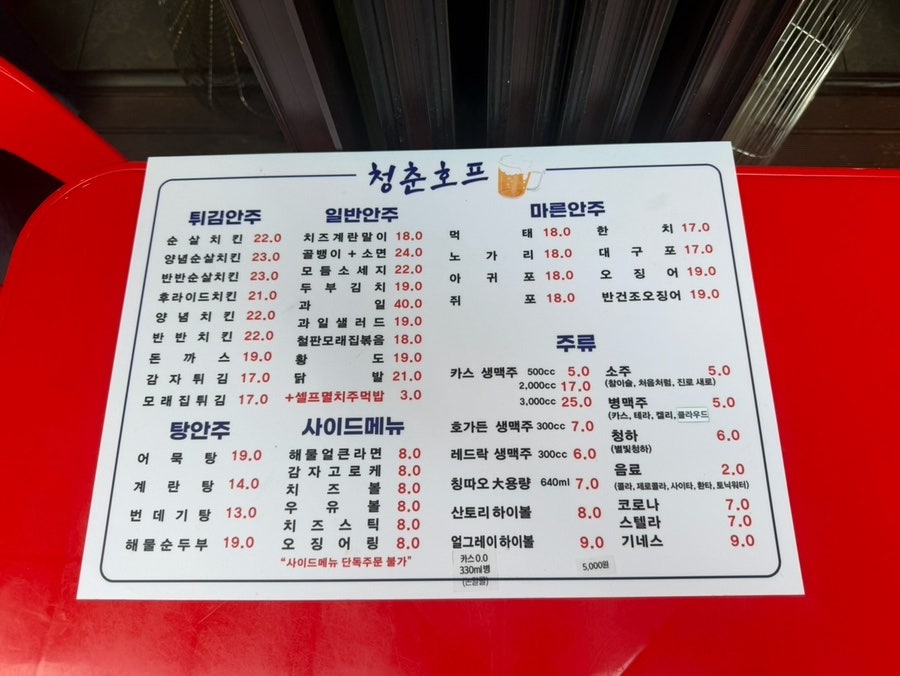 청춘호프
튀김안주
순살치킨 22.0
양념순살치킨 23.0
반반순살치킨 23.0
후라이드치킨 21.0
양념치킨 22.0
반반치킨 22.0
돈까스 19.0
감자튀김 17.0
모래집튀김 17.0
탕안주
어묵탕 19.0
계란탕 14.0
번데기탕 13.0
해물순두부 19.0
일반안주
치즈계란말이 18.0
골뱅이+소면 24.0
모듬소세지 22.0
두부김치 19.0
과일 40.0
과일샐러드 19.0
철판모래집볶음 18.0
황도 19.0
닭발 21.0
+셀프멸치주먹밥 3.0
사이드메뉴
해물얼큰라면 8.0
감자고로케 8.0
치즈볼 8.0
우유볼 8.0
치즈스틱 8.0
오징어링 8.0
"사이드메뉴 단독주문 불가"
마른안주
먹태 18.0
노가리 18.0
아귀포 18.0
쥐포 18.0
한치 17.0
대구포 17.0
오징어 19.0
반건조오징어 19.0
주류
카스 생맥주 500cc 5.0
2,000cc 17.0
3,000cc 25.0
호가든 생맥주 300cc 7.0
레드락 생맥주 300cc 6.0
칭따오 大용량 640ml 7.0
산토리하이볼 8.0
얼그레이하이볼 9.0
카스 0.0
330ml병
(논알콜)
5,000원
소주 5.0
(참이슬, 처음처럼, 진로 새로)
병맥주 5.0
(카스, 테라, 켈리, 클라우드
청하 6.0
(별빛청하)
음료 2.0
(콜라, 제로콜라, 사이다, 환타, 토닉워터)
코로나 7.0
스텔라 7.0
기네스 9.0